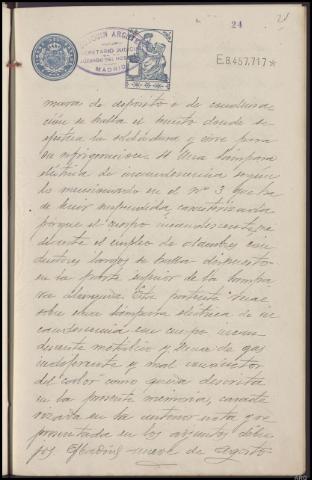 24
JOAQUIN ARGOTE
SECRETARIO JUDICIAL
JUZGADO DEL
MADRID
E8.457.717*
mara de depósito o de condensa-
ción se halla el punto donde se
efectúa la soldadura y sirve para
su refrigeración. 4 Una lámpara
eléctrica de incandescencia según
lo mencionado en el nº 3 que ha
de lucir suspendida, caracterizada
porque el cuerpo incandescente, me
diante el empleo de alambres con
ductores largos se halla dispuesto
en la parte superior de la lampa
ra alargada. Esta patente recae
sobre una lámpara eléctrica de in
candescencia con cuerpo incan
descente metálico y llena de gas
indiferente y mal conductor
del calor como queda descrita
en la presente memoria, caracte
rizada en la anterior nota y re
presentada en los adjuntos dibu
jos. Madrid nueve de Agosto